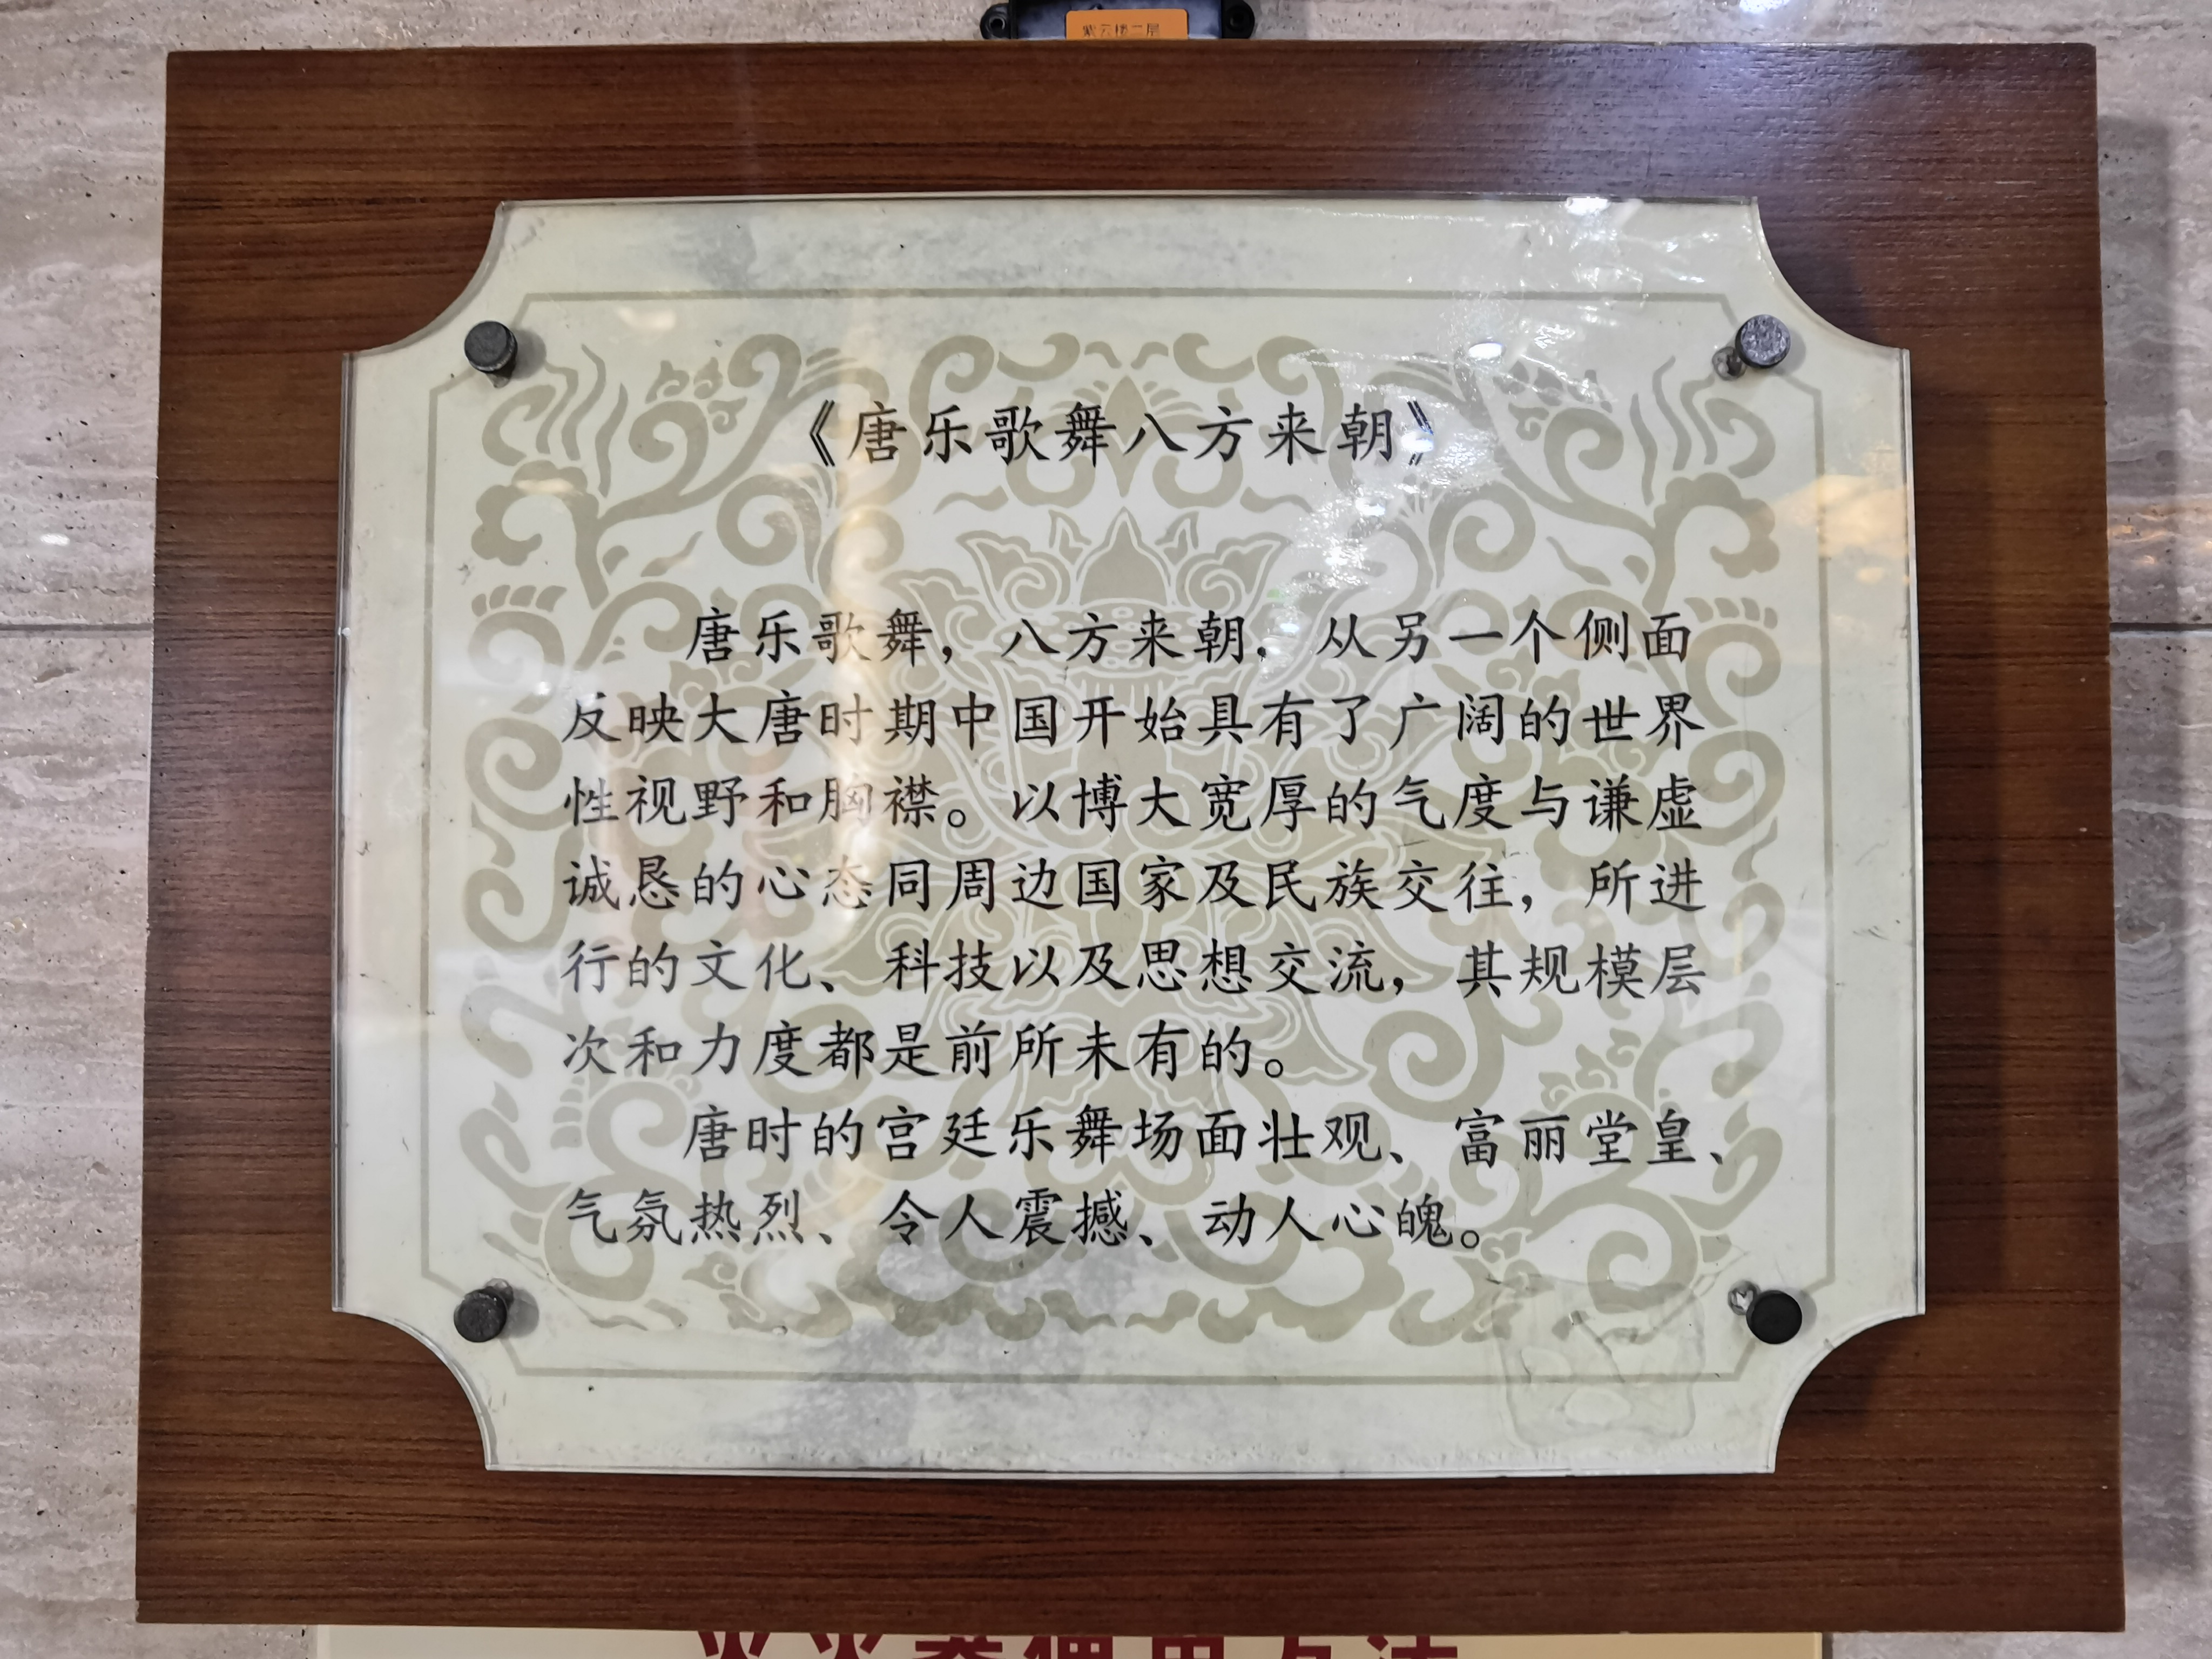 紫云楼二层
《唐乐歌舞八方来朝》
唐乐歌舞，八方来朝，从另一个侧面
反映大唐时期中国开始具有了广阔的世界
性视野和胸襟。以博大宽厚的气度与谦虚
诚恳的心态同周边国家及民族交往，所进
行的文化、科技以及思想交流，其规模层
次和力度都是前所未有的。
唐时的宫廷乐舞场面壮观、富丽堂皇、
气氛热烈、令人震撼、动人心魄。